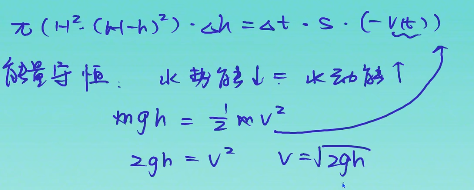 π(H²-(H-h)²)·△h=△t·S·(-V(t))
能量守恒: 水势能↓=水动能↑
mgh = ½mv²
2gh = v² v=√2gh